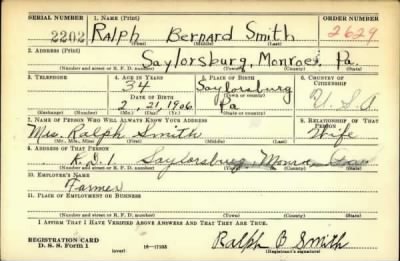 SERIAL NUMBER 1. NAME (Print) ORDER NUMBER
2202 Ralph Bernard Smith 2629
(First) (Middle) (Last)
2. ADDRESS (Print)
Saylorsburg, Monroe, Pa.
(Number and street or R. F. D. number) (Town) (County) (State)
3. TELEPHONE 4. AGE IN YEARS 5. PLACE OF BIRTH 6. COUNTRY OF CITIZENSHIP
34 Saylorsburg
DATE OF BIRTH (Town or county)
2 . 21, 1906 Pa U.S.A
(Exchange) (Number) (Mo.) (Day) (Yr.) (State or country)
7. NAME OF PERSON WHO WILL ALWAYS KNOW YOUR ADDRESS 8. RELATIONSHIP OF THAT PERSON
Mrs. Ralph Smith Wife
9. ADDRESS OF THAT PERSON
R.D.1. Saylorsburg, Monroe
(Number and street or R. F. D. number) (Town) (County) (State)
10. EMPLOYER'S NAME
Farmer
11. PLACE OF EMPLOYMENT OR BUSINESS
(Number and street or R. F. D. number) (Town) (County) (State)
I AFFIRM THAT I HAVE VERIFIED ABOVE ANSWERS AND THAT THEY ARE TRUE.
REGISTRATION CARD
D. S. S. Form 1 (over) 16—17105 Ralph B Smith
(Registrant's signature)